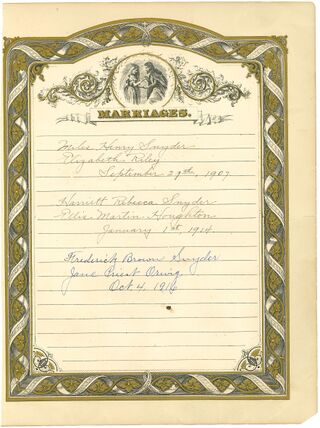 MARRIAGES.
Miles Henry Snyder
Elizabeth Riley
September 29th, 1907
Harriett Rebecca Snyder
Ellis Martin Houghton
January 1st 1914.
Frederick Brown Snyder
Jane Priest
Oct. 4, 1916